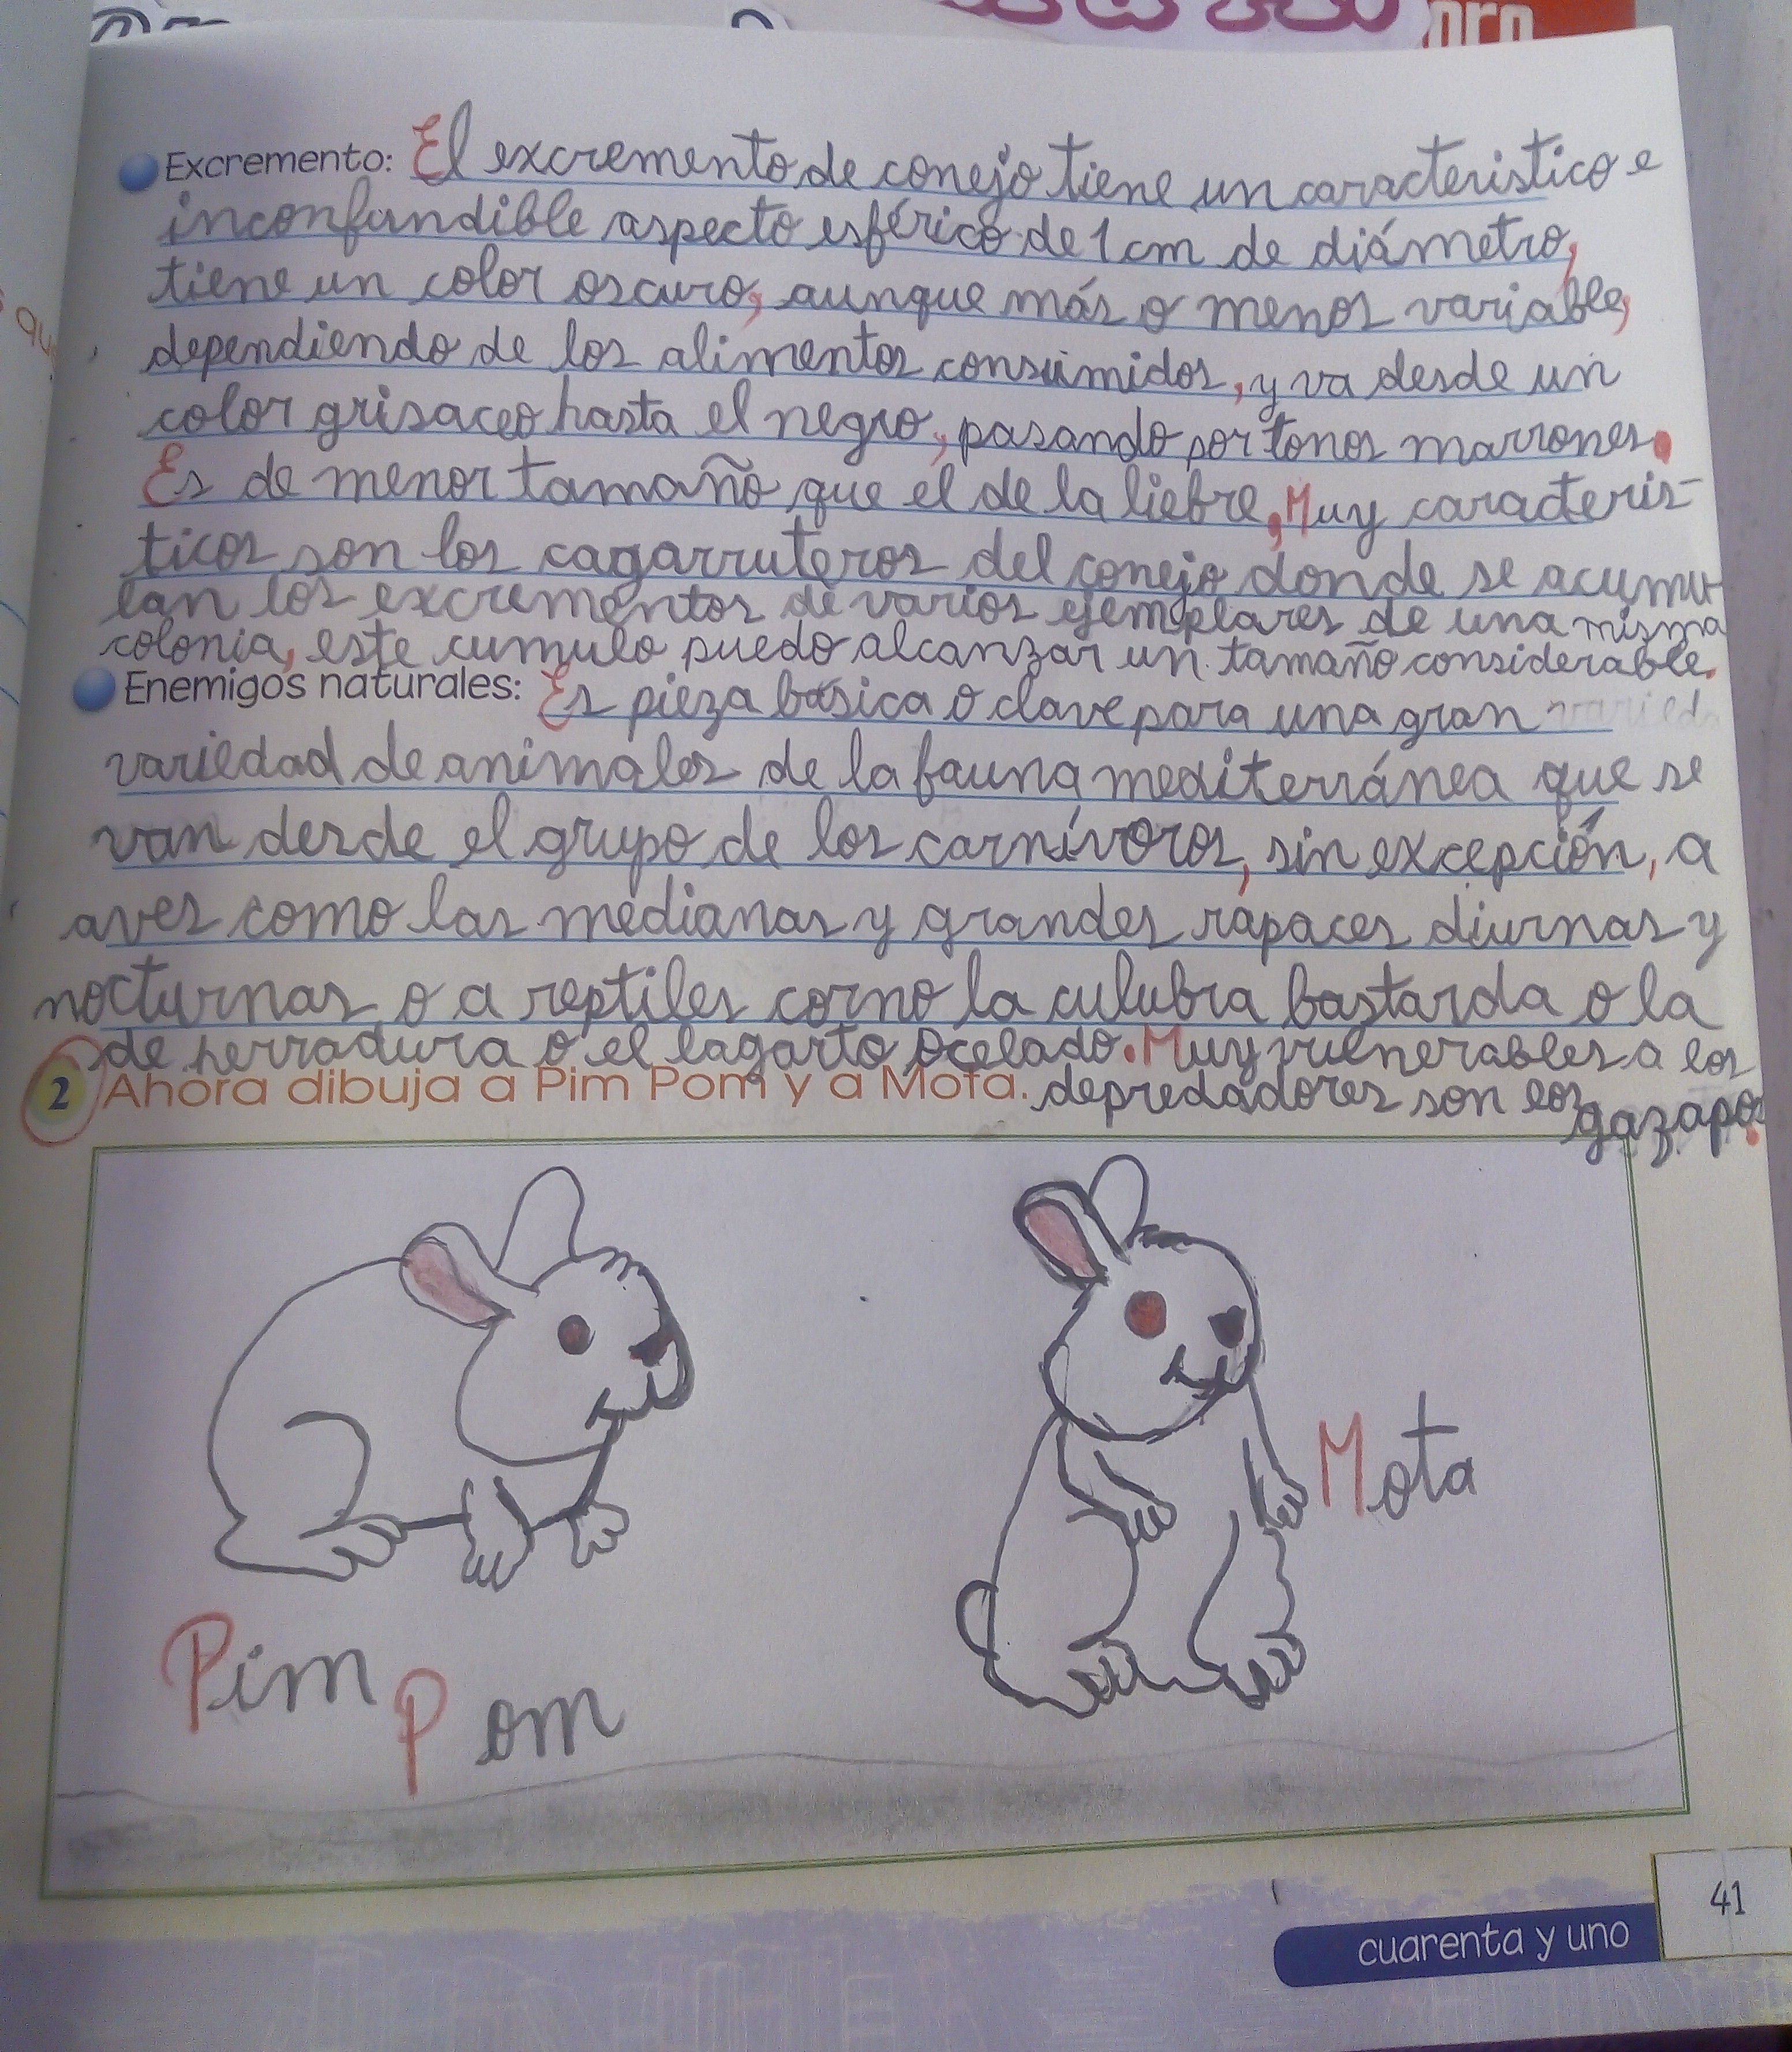 oro
Excremento: El excremento de conejo tiene un caracteristico e
inconfundible aspecto esférico de 1 cm de diámetro,
tiene un color oscuro, aunque más o menos variable,
dependiendo de los alimentos consumidos, y va desde un
color grisaceo hasta el negro, pasando por tonos marrones.
Es de menor tamaño que el de la liebre, Muy caracteris-
ticos son los cagarruteros del conejo donde se acumu-
lan los excrementos de varios ejemplares de una misma
colonia, este cumulo puedo alcanzar un tamaño considerable.
Enemigos naturales: Es pieza básica o clave para una gran
variedad de animales de la fauna mediterránea que se
van desde el grupo de los carnívoros, sin excepción, a
aves como las medianas y grandes rapaces diurnas y
nocturnas o a reptiles como la culubra bastarda o la
de herradura o el lagarto ocelado. Muy vulnerables a los
depredadores son los
gazapos.
2 Ahora dibuja a Pim Pom y a Mota.
Mota
Pim Pom
41
cuarenta y uno